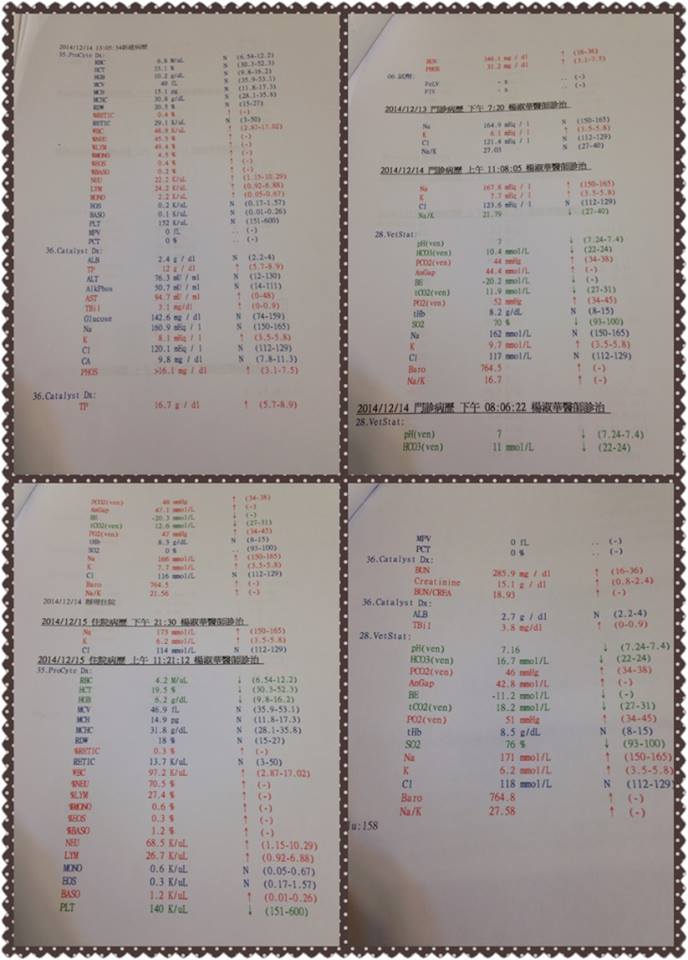 2014/12/14 13:05:34新建病歷
35.ProCyte Dx:
RBC 6.8 M/uL N (6.54-12.2)
HCT 33.1 % N (30.3-52.3)
HGB 10.2 g/dL N (9.8-16.2)
MCV 49 fL N (35.9-53.1)
MCH 15.1 pg N (11.8-17.3)
MCHC 30.8 g/dL N (28.1-35.8)
RDW 20.3 % N (15-27)
%RETIC 0.4 % ↑ (-)
RETIC 29.1 K/uL N (3-50)
WBC 48.9 K/uL ↑ (2.87-17.02)
%NEU 45.3 % ↑ (-)
%LYM 49.4 % ↑ (-)
%MONO 4.5 % ↑ (-)
%EOS 0.4 % ↑ (-)
%BASO 0.2 % ↑ (-)
NEU 22.2 K/uL ↑ (1.15-10.29)
LYM 24.2 K/uL ↑ (0.92-6.88)
MONO 2.2 K/uL ↑ (0.05-0.67)
EOS 0.2 K/uL N (0.17-1.57)
BASO 0.1 K/uL N (0.01-0.26)
PLT 152 K/uL N (151-600)
MPV 0 fL .. (-)
PCT 0 % .. (-)
36.Catalyst Dx:
ALB 2.4 g / dl N (2.2-4)
TP 12 g / dl ↑ (5.7-8.9)
ALT 76.3 mU / ml N (12-130)
AlkPhos 50.7 mU / ml N (14-111)
AST 94.7 mU / ml ↑ (0-48)
TBil 3.1 mg/dl ↑ (0-0.9)
Glucose 142.6 mg / dl N (74-159)
Na 160.9 mEq / l N (150-165)
K 8.1 mEq / l ↑ (3.5-5.8)
Cl 120.1 mEq / l N (112-129)
CA 9.8 mg / dl N (7.8-11.3)
PHOS >16.1 mg / dl ↑ (3.1-7.5)
36.Catalyst Dx:
TP 16.7 g / dl ↑ (5.7-8.9)
BUN 346.1 mg / dl ↑ (16-36)
PHOS 31.2 mg / dl ↑ (3.1-7.5)
06.試劑:
FeLV - n .. (-)
FIV - n .. (-)
2014/12/13 門診病歷 下午 7:20 楊淑華醫師診治
Na 164.9 mEq / l N (150-165)
K 6.1 mEq / l ↑ (3.5-5.8)
Cl 121.4 mEq / l N (112-129)
Na/K 27.03 N (27-40)
2014/12/14 門診病歷 上午 11:08:05 楊淑華醫師診治
Na 167.8 mEq / l ↑ (150-165)
K 7.7 mEq / l ↑ (3.5-5.8)
Cl 123.6 mEq / l N (112-129)
Na/K 21.79 ↓ (27-40)
28.VetStat:
pH(ven) 7 ↓ (7.24-7.4)
HCO3(ven) 10.4 mmol/L ↓ (22-24)
PCO2(ven) 44 mmHg ↑ (34-38)
AnGap 44.4 mmol/L ↑ (-)
BE -20.2 mmol/L ↓ (-)
tCO2(ven) 11.9 mmol/L ↓ (27-31)
PO2(ven) 52 mmHg ↑ (34-45)
tHb 8.2 g/dL N (8-15)
SO2 70 % ↓ (93-100)
Na 162 mmol/L N (150-165)
K 9.7 mmol/L ↑ (3.5-5.8)
Cl 117 mmol/L N (112-129)
Baro 764.5 ↑ (-)
Na/K 16.7 ↑ (-)
2014/12/14 門診病歷 下午 08:06:22 楊淑華醫師診治
28.VetStat:
pH(ven) 7 ↓ (7.24-7.4)
HCO3(ven) 11 mmol/L ↓ (22-24)
PCO2(ven) 46 mmHg ↑ (34-38)
AnGap 47.1 mmol/L ↑ (-)
BE -20.3 mmol/L ↓ (-)
tCO2(ven) 12.6 mmol/L ↓ (27-31)
PO2(ven) 47 mmHg ↑ (34-45)
tHb 8.3 g/dL N (8-15)
SO2 0 % .. (93-100)
Na 166 mmol/L ↑ (150-165)
K 7.7 mmol/L ↑ (3.5-5.8)
Cl 116 mmol/L N (112-129)
Baro 764.5 ↑ (-)
Na/K 21.56 ↑ (-)
2014/12/14 辦理住院
2014/12/15 住院病歷 下午 21:30 楊淑華醫師診治
Na 173 mmol/L ↑ (150-165)
K 6.2 mmol/L ↑ (3.5-5.8)
Cl 114 mmol/L N (112-129)
2014/12/15 住院病歷 上午 11:21:12 楊淑華醫師診治
35.ProCyte Dx:
RBC 4.2 M/uL ↓ (6.54-12.2)
HCT 19.5 % ↓ (30.3-52.3)
HGB 6.2 g/dL ↓ (9.8-16.2)
MCV 46.9 fL N (35.9-53.1)
MCH 14.9 pg N (11.8-17.3)
MCHC 31.8 g/dL N (28.1-35.8)
RDW 18 % N (15-27)
%RETIC 0.3 % ↑ (-)
RETIC 13.7 K/uL N (3-50)
WBC 97.2 K/uL ↑ (2.87-17.02)
%NEU 70.5 % ↑ (-)
%LYM 27.4 % ↑ (-)
%MONO 0.6 % ↑ (-)
%EOS 0.3 % ↑ (-)
%BASO 1.2 % ↑ (-)
NEU 68.5 K/uL ↑ (1.15-10.29)
LYM 26.7 K/uL ↑ (0.92-6.88)
MONO 0.6 K/uL N (0.05-0.67)
EOS 0.3 K/uL N (0.17-1.57)
BASO 1.2 K/uL ↑ (0.01-0.26)
PLT 140 K/uL ↓ (151-600)
MPV 0 fL .. (-)
PCT 0 % .. (-)
36.Catalyst Dx:
BUN 285.9 mg / dl ↑ (16-36)
Creatinine 15.1 g / dl ↑ (0.8-2.4)
BUN/CREA 18.93 ↑ (-)
36.Catalyst Dx:
ALB 2.7 g / dl N (2.2-4)
TBil 3.8 mg/dl ↑ (0-0.9)
28.VetStat:
pH(ven) 7.16 ↓ (7.24-7.4)
HCO3(ven) 16.7 mmol/L ↓ (22-24)
PCO2(ven) 46 mmHg ↑ (34-38)
AnGap 42.8 mmol/L ↑ (-)
BE -11.2 mmol/L ↓ (-)
tCO2(ven) 18.2 mmol/L ↓ (27-31)
PO2(ven) 51 mmHg ↑ (34-45)
tHb 8.5 g/dL N (8-15)
SO2 76 % ↓ (93-100)
Na 171 mmol/L ↑ (150-165)
K 6.2 mmol/L ↑ (3.5-5.8)
Cl 118 mmol/L N (112-129)
Baro 764.8 ↑ (-)
Na/K 27.58 ↑ (-)
lu:158